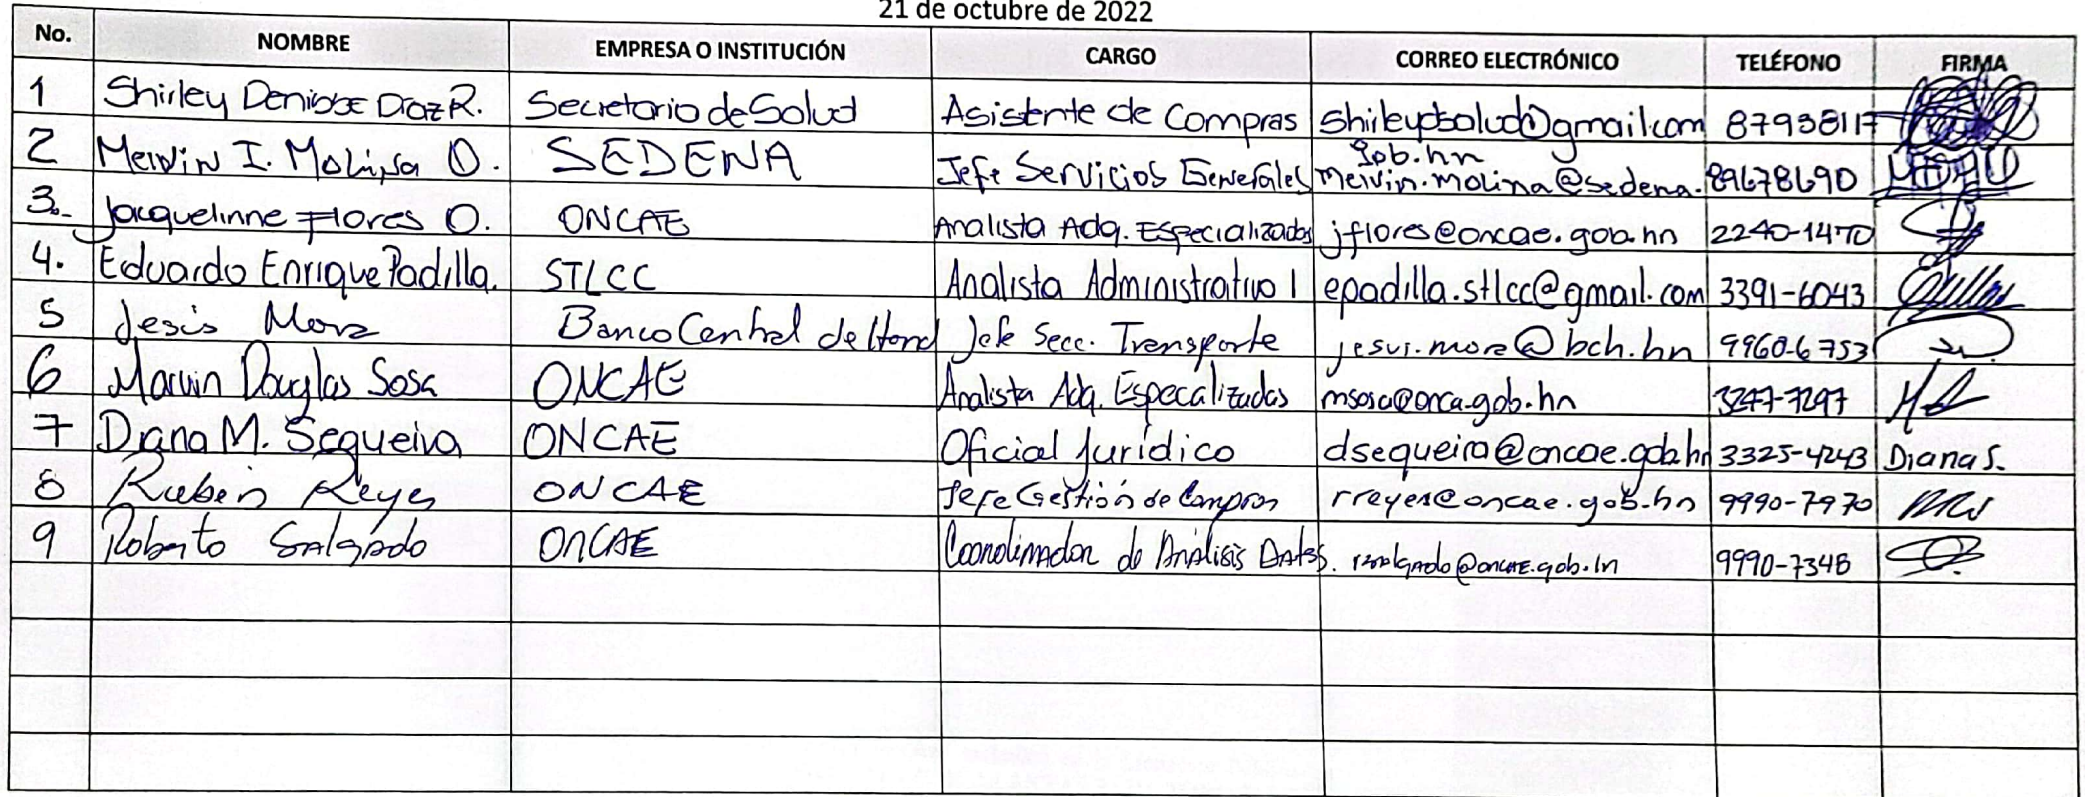 21 de octubre de 2022
No. NOMBRE EMPRESA O INSTITUCIÓN CARGO CORREO ELECTRÓNICO TELÉFONO FIRMA
1 Shirley Denisse Diaz R. Secretaria de Salud Asistente de Compras shirleydsalud@gmail.com 87938117
2 Melvin I. Molina O. SEDENA Jefe Servicios Generales melvin.molina@sedena.gob.hn 89678690
3.- Jacquelinne Flores O. ONCAE Analista Adq. Especializados jflores@oncae.gob.hn 2240-1470
4. Eduardo Enrique Padilla. STLCC Analista Administrativo I epadilla.stlcc@gmail.com 3391-6043
5 Jesús Mora Banco Central de Hond Jefe Secc. Transporte jesus.mora@bch.hn 9960-6753
6 Marvin Douglas Sosa ONCAE Analista Adq. Especalizados msosa@onca.gob.hn 3277-7297
7 Diana M. Sequeira ONCAE Oficial Jurídico dsequeira@oncae.gob.hn 3325-4243 Diana S.
8 Rubén Reyes ONCAE Jefe Gestión de Compras rreyes@oncae.gob.hn 9990-7970
9 Roberto Salgado ONCAE Coordinador de Análisis Datos. rsalgado@oncae.gob.hn 9990-7348